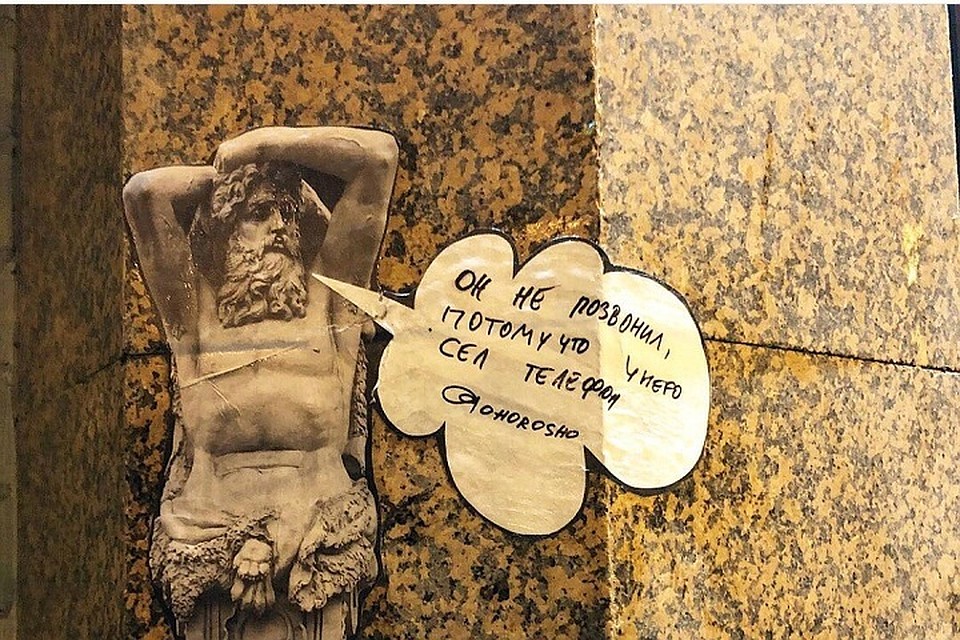 ОН НЕ ПОЗВОНИЛ,
ПОТОМУ ЧТО У НЕГО
СЕЛ ТЕЛЕФОН
@OHOROSHO